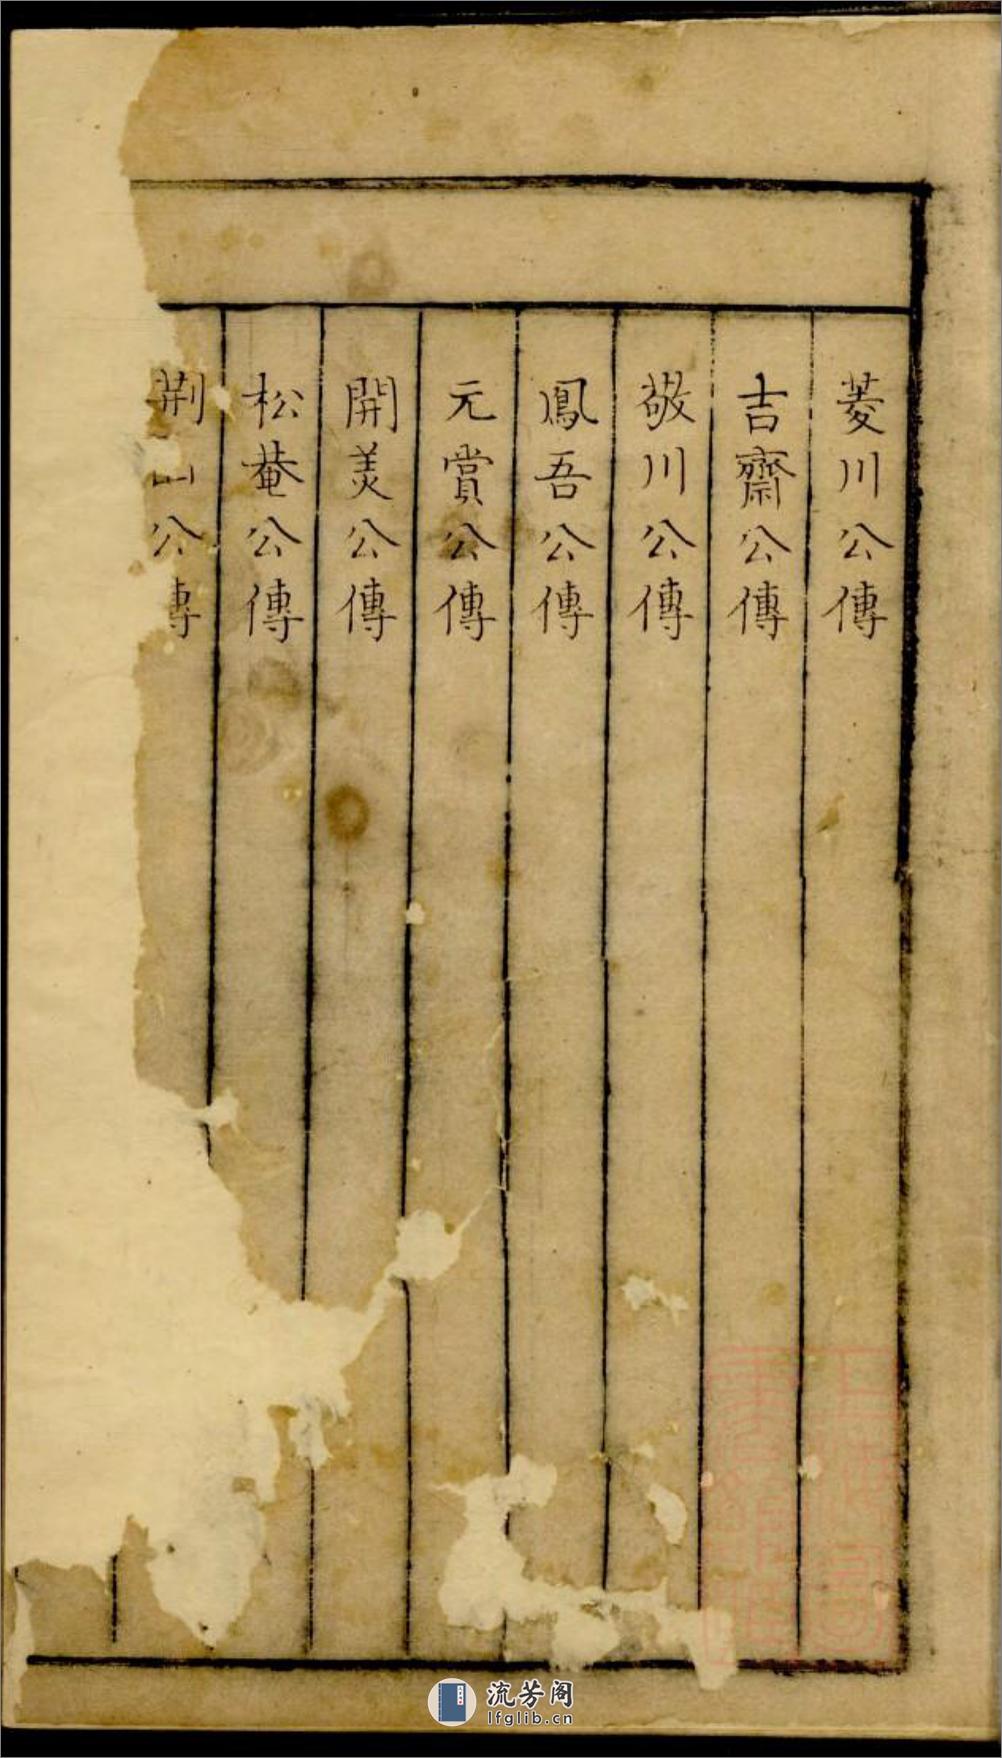 菱川公傳
吉齋公傳
敬川公傳
鳳吾公傳
元賞公傳
開美公傳
松菴公傳
荆山公傳
流芳阁
lfglib.cn